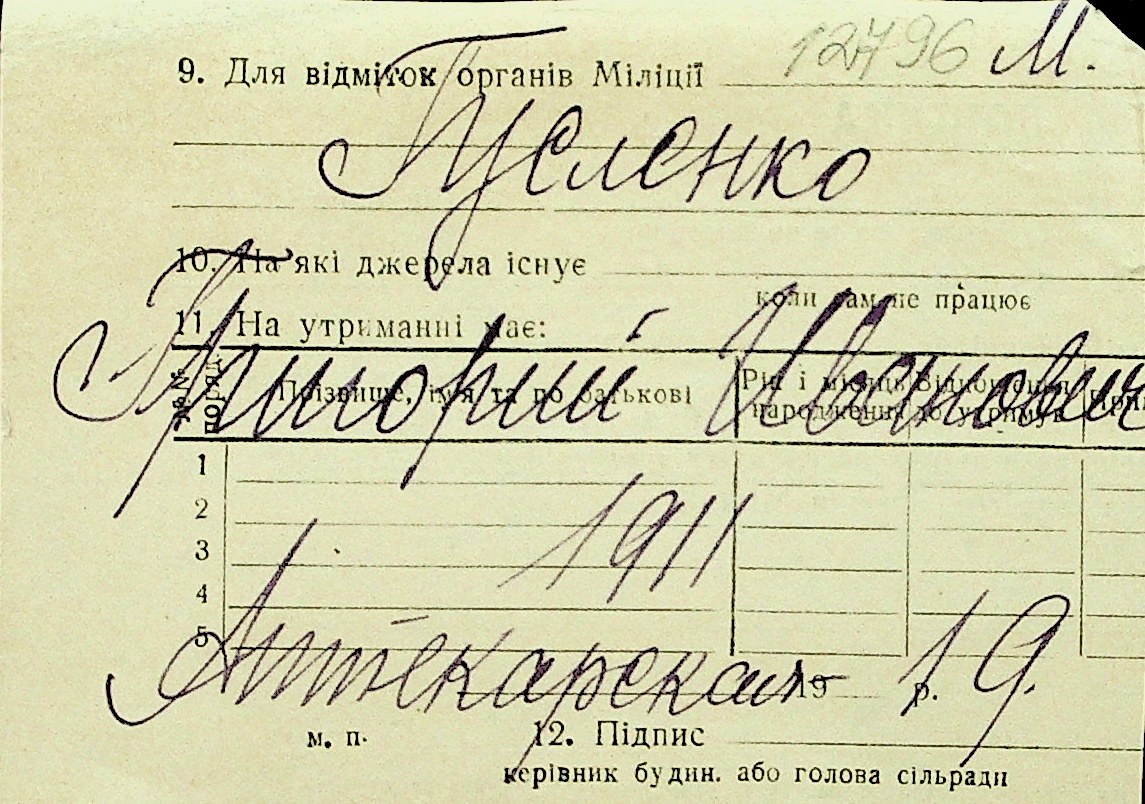 12796 М.
9. Для відміток органів Міліції
Гусленко
10. На які джерела існує
коли сам не працює
11. На утриманні має:
Григорий Иванович
№№ поряд.
Прізвище, ім'я та по батькові
Рік і місяць народження
Відношення до утримув.
1
2
3
4
5
1911
Аптекарская 19.
19 р.
м. п.
12. Підпис
керівник будин. або голова сільради